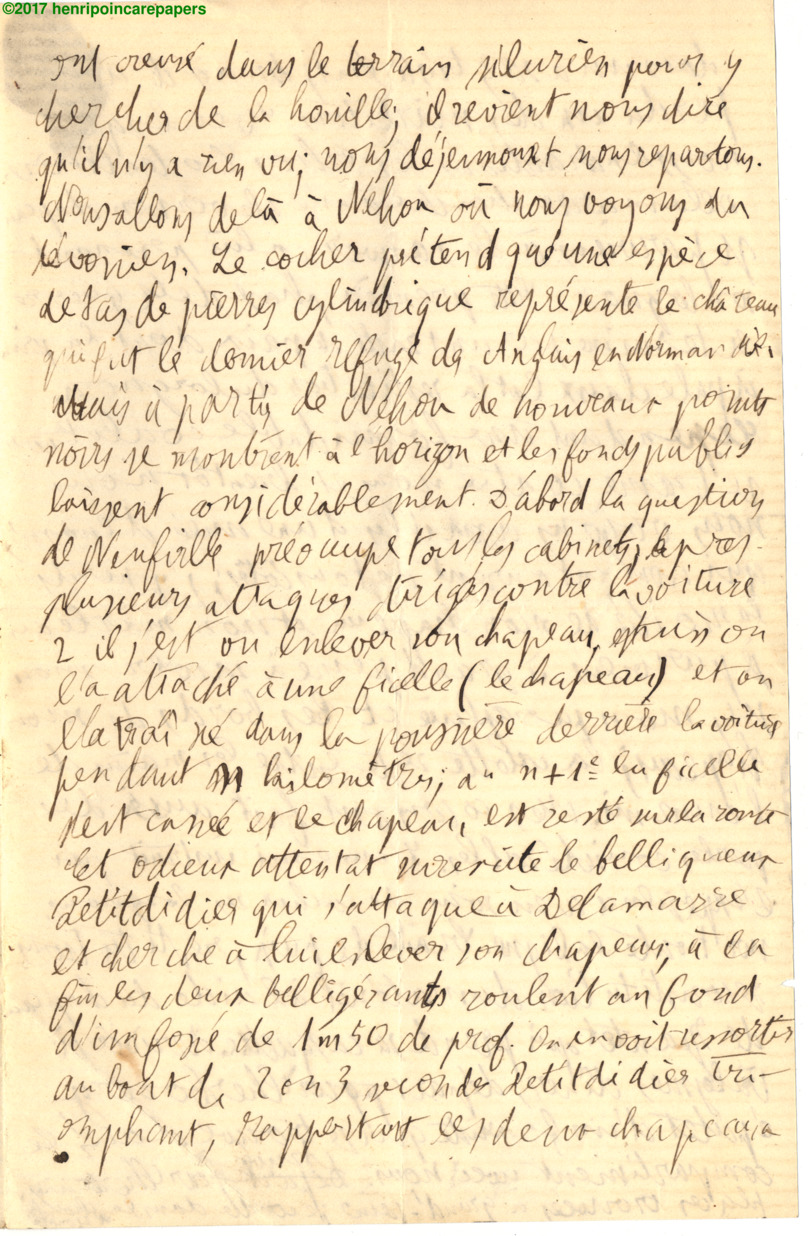 ©2017 henripoincarepapers
ont creusé dans le terrain silurien pour y
chercher de la houille; il revient nous dire
qu'il n'y a rien vu; nous déjeunons et nous repartons.
Nous allons de là à Néhou où nous voyons du
dévonien. Le cocher prétend que une espèce
de tas de pierres cylindrique représente le château
qui fut le dernier refuge des Anglais en Normandie.
Mais à partir de Néhou de nouveaux points
noirs se montrent à l'horizon et les fonds publics
baissent considérablement. D'abord la question
de Neufville préoccupe tous les cabinets; après
plusieurs attaques dirigées contre la voiture
2 il s'est vu enlever son chapeau, puis on
l'a attaché à une ficelle (le chapeau) et on
l'a traîné dans la poussière derrière la voiture
pendant n kilomètres; au n+1e la ficelle
s'est cassée et le chapeau est resté sur la route
Cet odieux attentat surexcite le belliqueux
Petitdidier qui s'attaque à Delamarre
et cherche à lui enlever son chapeau; à la
fin les deux belligérants roulent au fond
d'un fossé de 1m50 de prof. On en voit ressortir
au bout de 2 ou 3 secondes Petitdidier tri-
omphant, rapportant les deux chapeaux